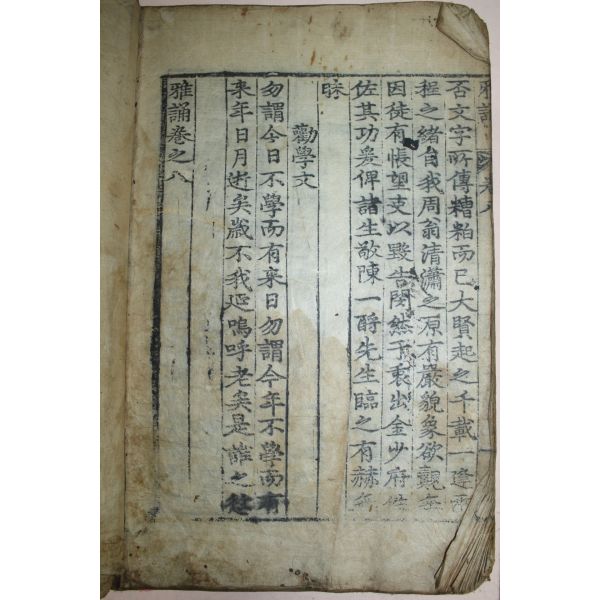 雅誦 卷八
否文字所傳糟粕而已大賢起之千載一逢爾
程之緒自我周翁清瀟之原有嚴貌象欲覿無
因徒有悵望吏以毀告閔然予衷出金少府
佐其功爰俾諸生敬陳一酹先生臨之有赫無
昧
勸學文
勿謂今日不學而有來日勿謂今年不學而有
来年日月逝矣歲不我延嗚呼老矣是誰之愆
雅誦卷之八